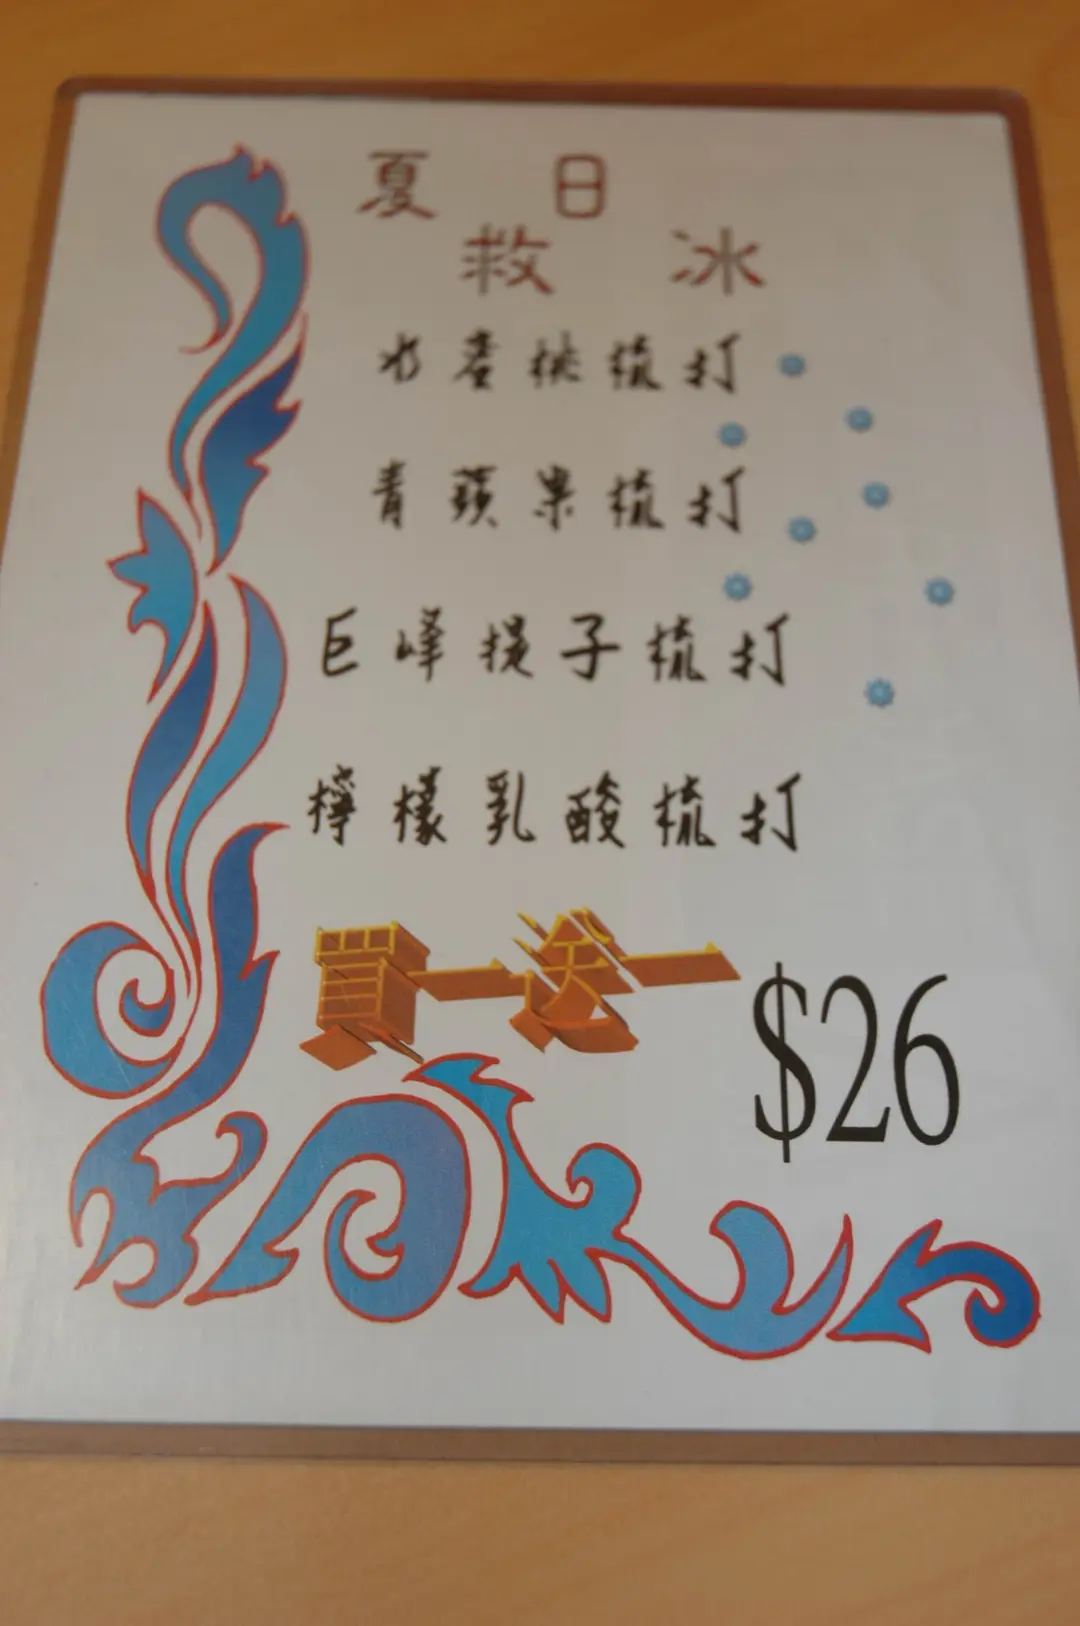 夏 日
救 冰
水蜜桃梳打
青蘋果梳打
巨峰提子梳打
檸檬乳酸梳打
買一送一
$26